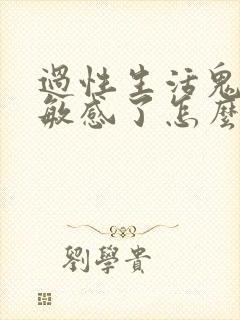 過性生活鬼
敏感了怎麼
劉學貴